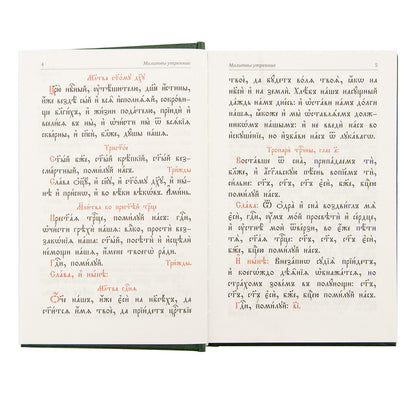 4 Молитвы утренние
Мл҃тва ст҃о́мꙋ дх҃ꙋ
Цр҃ю̀ нбⷭ҇ный, ᲂу҆тѣ́шителю, дш҃е и҆́стины,
и҆́же вездѣ̀ сы́й и҆ всѧ̑ и҆сполнѧ́ѧй, сокро́ви-
ще бл҃ги́хъ, и҆ жи́зни пода́телю, прїидѝ и҆
всели́сѧ въ ны̀, и҆ ѡ҆чи́сти ны̀ ѿ всѧ́кїѧ
сква́рны, и҆ сп҃сѝ, бл҃же, дꙋ́шы на́шѧ.
Трист҃о́е
Ст҃ы́й бж҃е, ст҃ы́й крѣ́пкїй, ст҃ы́й без-
сме́ртный, поми́лꙋй на́съ. Три́жды.
Сла́ва ѻ҆ц҃ꙋ̀, и҆ сн҃ꙋ, и҆ ст҃о́мꙋ дх҃ꙋ, и҆ ны́-
нѣ и҆ при́снѡ, и҆ во вѣ́ки вѣкѡ́въ, а҆ми́нь.
Мл҃тва ко прест҃ѣ́й трⷪ҇цѣ
Прест҃а́ѧ трⷪ҇це, поми́лꙋй на́съ: гдⷭ҇и,
ѡ҆чи́сти грѣхѝ на́шѧ: влⷣко, простѝ без-
закѡ́нїѧ на̑ша: ст҃ы́й, посѣтѝ и҆ и҆сцѣлѝ
не́мѡщи на́шѧ, и҆́мене твоегѡ̀ ра́ди.
Гдⷭ҇и, поми́лꙋй. Три́жды.
Сла́ва, и҆ ны́нѣ:
Мл҃тва гдⷭ҇нѧ
Ѻ҆́ч҃е на́шъ, и҆́же є҆сѝ на нб҃сѣ́хъ, да
ст҃и́тсѧ и҆́мѧ твоѐ, да прїи́детъ црⷭ҇твїе
Молитвы утренние 5
твоѐ, да бꙋ́детъ во́лѧ твоѧ̀, ꙗ҆́кѡ на
нб҃сѝ и҆ на землѝ. Хлѣ́бъ на́шъ насꙋ́щный
да́ждь на́мъ дне́сь: и҆ ѡ҆ста́ви на́мъ до́лги
на́шѧ, ꙗ҆́коже и҆ мы̀ ѡ҆ставлѧ́емъ долж-
никѡ́мъ на́шымъ: и҆ не введѝ на́съ во
и҆скꙋше́нїе, но и҆зба́ви на́съ ѿ лꙋка́вагѡ.
Тропарѝ трⷪ҇чны, гла́съ а҃:
Воста́вше ѿ сна̀, припа́даемъ тѝ,
бл҃же, и҆ а҆́гг҃льскꙋю пѣ́снь вопїе́мъ тѝ,
си́льне: ст҃ъ, ст҃ъ, ст҃ъ є҆сѝ, бж҃е, бцⷣею
поми́лꙋй на́съ.
Сла́ва: Ѿ ѻ҆дра̀ и҆ сна̀ воздви́глъ мѧ̀
є҆сѝ, гдⷭ҇и, ᲂу҆́мъ мо́й просвѣтѝ и҆ се́рдце,
и҆ ᲂу҆стнѣ̀ моѝ ѿве́рзи, во є҆́же пѣ́ти тѧ̀,
ст҃а́ѧ трⷪ҇це: ст҃ъ, ст҃ъ, ст҃ъ є҆сѝ, бж҃е,
бцⷣею поми́лꙋй на́съ.
И҆ ны́нѣ: Внеза́пнѡ сꙋдїѧ̀ прїи́детъ,
и҆ коегѡ́ждо дѣѧ̑нїѧ ѡ҆бнажа́тсѧ, но
стра́хомъ зове́мъ въ полꙋ́нощи: ст҃ъ,
ст҃ъ, ст҃ъ є҆сѝ, бж҃е, бцⷣею поми́лꙋй на́съ.
Гдⷭ҇и, поми́лꙋй: в҃і.